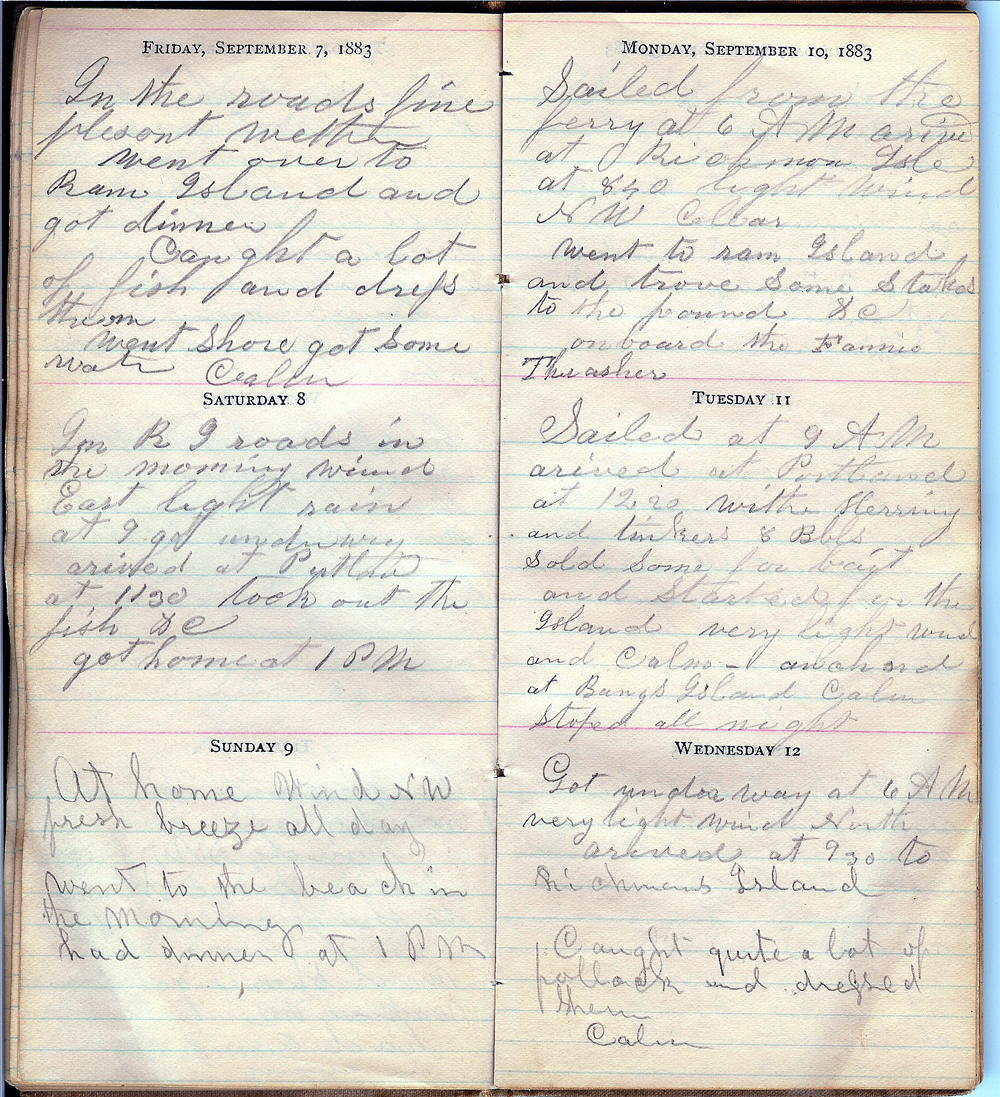 FRIDAY, SEPTEMBER 7, 1883
In the roads fine
plesont wether
went over to
Ram Island and
got dinner
Caught a lot
of fish and dress
them
went Shore got Some
water Calm
SATURDAY 8
In R I roads in
the morning wind
East light rain
at 9 got underway
arived at Portland
at 1130 took out the
fish &C
got home at 1 PM
SUNDAY 9
At home Wind NW
fresh breeze all day
went to the beach in
the Morning
had dinner at 1 PM
MONDAY, SEPTEMBER 10, 1883
Sailed from the
ferry at 6 AM arive
at Richmon Isle
at 840 light wind
NW Cllear
went to ram Island
and trove Some Stakes
to the pound &C
onboard the Fannie
Thrasher
TUESDAY 11
Sailed at 9 AM
arived at Portland
at 1220 withe Herring
and tinkers 8 Bbls
Sold Some for bait
and Started for the
Island very light wind
and Calm - anchord
at Bangs Island Calm
Stoped all night
WEDNESDAY 12
Got under way at 6 AM
very light wind North
arived at 930 to
Richmens Island
Caught quite a lot of
pollack and dressed
them
Calm